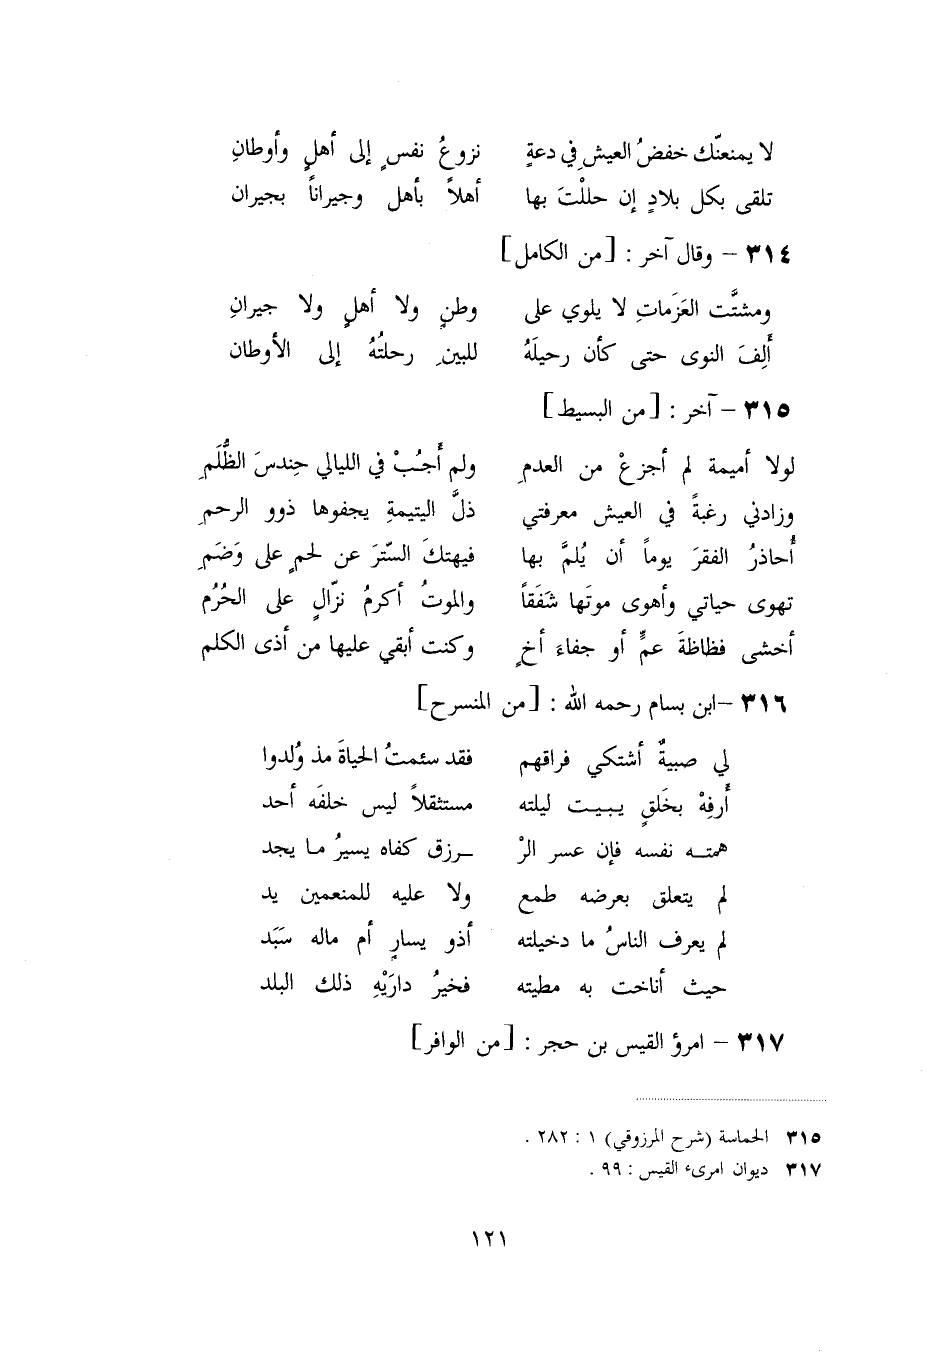 لا يمنعنّك خفضُ العيشِ في دعةٍ نزوعُ نفسٍ إلى أهلٍ وأوطانِ
تلقى بكل بلادٍ إن حللْتَ بها أهلاً بأهل وجيراناً بجيران
٣١٤ – وقال آخر : [من الكامل]
ومشتَّت العَزَماتِ لا يلوي على وطنٍ ولا أهلٍ ولا جيرانِ
أَلِفَ النوى حتى كأن رحيلَهُ للبينِ رحلتُهُ إلى الأوطان
٣١٥ – آخر : [من البسيط]
لولا أميمة لم أجزعْ من العدمِ ولم أَجُبْ في الليالي حِندسَ الظُّلَمِ
وزادني رغبةً في العيش معرفتي ذلَّ اليتيمةِ يجفوها ذوو الرحمِ
أُحاذرُ الفقرَ يوماً أن يُلمَّ بها فيهتكَ السّترَ عن لحمٍ على وَضَمِ
تهوى حياتي وأهوى موتَها شَفَقاً والموتُ أكرمُ نزّالٍ على الحُرُم
أخشى فظاظةَ عمٍّ أو جفاءَ أخٍ وكنت أبقي عليها من أذى الكلم
٣١٦ – ابن بسام رحمه الله : [من المنسرح]
لي صبيةٌ أشتكي فراقهم فقد سئمتُ الحياةَ مذ وُلدوا
أَرفِهْ بخَلقٍ يبيت ليلته مستثقلاً ليس خلفَه أحد
همته نفسه فإن عسر الرْ رزق كفاه يسيرُ ما يجد
لم يتعلق بعرضه طمع ولا عليه للمنعمين يد
لم يعرف الناسُ ما دخيلته أذو يسارٍ أم ماله سَبَد
حيث أناخت به مطيته فخيرُ دارَيْهِ ذلك البلد
٣١٧ – امرؤ القيس بن حجر : [من الوافر]
٣١٥ الحماسة (شرح المرزوقي) ١ : ٢٨٢ .
٣١٧ ديوان امرىء القيس : ٩٩ .
١٢١